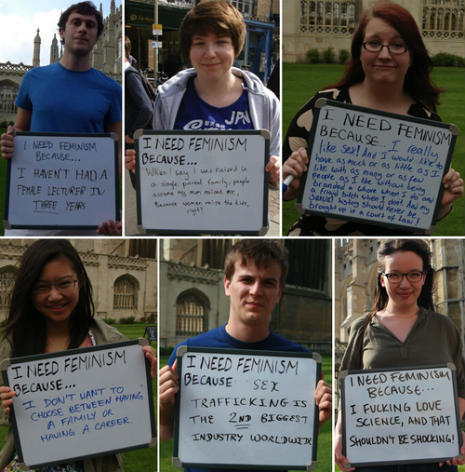 I NEED FEMINISM
BECAUSE...
I HAVEN'T HAD A
FEMALE LECTURER IN
THREE YEARS
JPN
I NEED FEMINISM
BECAUSE...
When I say I was raised in
a single parent family, people
assume my mom raised me,
because women raise the kids,
right?
I NEED FEMINISM
BECAUSE I really
like sex! And I would like to
have as much or as little as I
like with as many or as few
people as I like without being
branded a whore when I do and
a frigid bitch when I don't. And my
sexual history should never be
brought up in a court of law!
I NEED FEMINISM
BECAUSE...
I DON'T WANT TO
CHOOSE BETWEEN HAVING
A FAMILY OR
HAVING A CAREER.
I NEED FEMINISM
BECAUSE SEX
TRAFFICKING IS
THE 2ND BIGGEST
INDUSTRY WORLDWIDE
I NEED FEMINISM
BECAUSE...
I FUCKING LOVE
SCIENCE, AND THAT
SHOULDN'T BE SHOCKING!